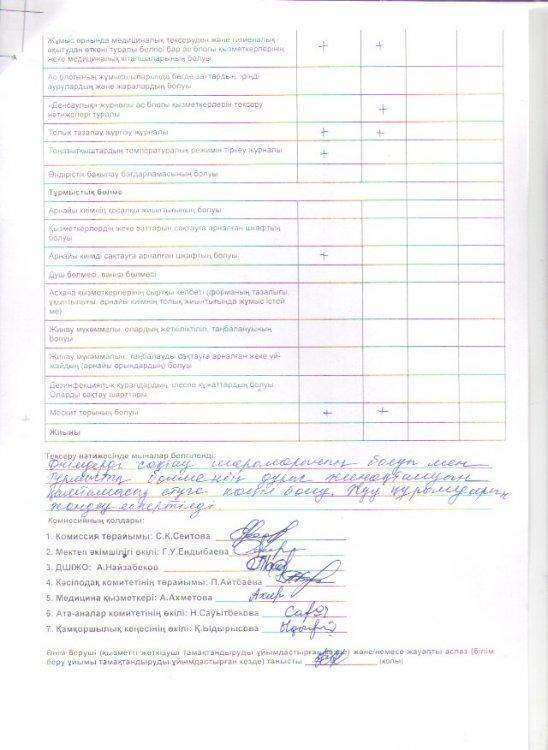 Жұмыс орнында медициналық тексеруден және гигиеналық
оқытудан өткені туралы белгісі бар ас блогы қызметкерлерінің
жеке медициналық кітапшаларының болуы + +
Ас блогының жұмысшыларында бөгде заттардың, іріңді
аурулардың және жаралардың болуы
«Денсаулық» журналы ас блогы қызметкерлерін тексеру
нәтижелері туралы +
Толық тазалау жүргізу журналы + +
Тоңазытқыштардың температуралық режимін тіркеу журналы +
Өндірістік бақылау бағдарламасының болуы
Тұрмыстық бөлме
Арнайы киімнің қосалқы жиынтығының болуы
Қызметкерлердің жеке заттарын сақтауға арналған шкафтың
болуы
Арнайы киімді сақтауға арналған шкафтың болуы +
Душ бөлмесі, ванна бөлмесі
Асхана қызметкерлерінің сыртқы келбеті (форманың тазалығы,
ұқыптылығы, арнайы киімнің толық жиынтығында жұмыс істей
ме)
Жинау мүкәммалы, олардың жеткіліктілігі, таңбалануының
болуы
Жинау мүкәммалын, таңбалауды сақтауға арналған жеке үй-
жайдың (арнайы орындардың) болуы
Дезинфекциялық құралдардың, ілеспе құжаттардың болуы
Оларды сақтау шарттары
Москит торының болуы + +
Жиыны
Тексеру нәтижесінде мыналар белгіленді:
сақтау болуы мен
дұрыс
болу. Жуу құралдарын
ескертілді
Комиссияның қолдары:
1. Комиссия төрайымы: С.К.Сеитова
2. Мектеп әкімшілігі өкілі: Г.У.Ендыбаева
3. ДШІЖО: А.Найзабеков
4. Кәсіподақ комитетінің төрайымы: П.Айтбаева
5. Медицина қызметкері: А.Ахметова
6. Ата-аналар комитетінің өкілі: Н.Сауытбекова
7. Қамқоршылық кеңесінің өкілі: Қ.Ыдырысова
Өнім беруші (қызметті жеткізуші тамақтандыруды ұйымдастырған кезде) және/немесе жауапты аспаз (білім
беру ұйымы тамақтандыруды ұйымдастырған кезде) танысты (қолы)